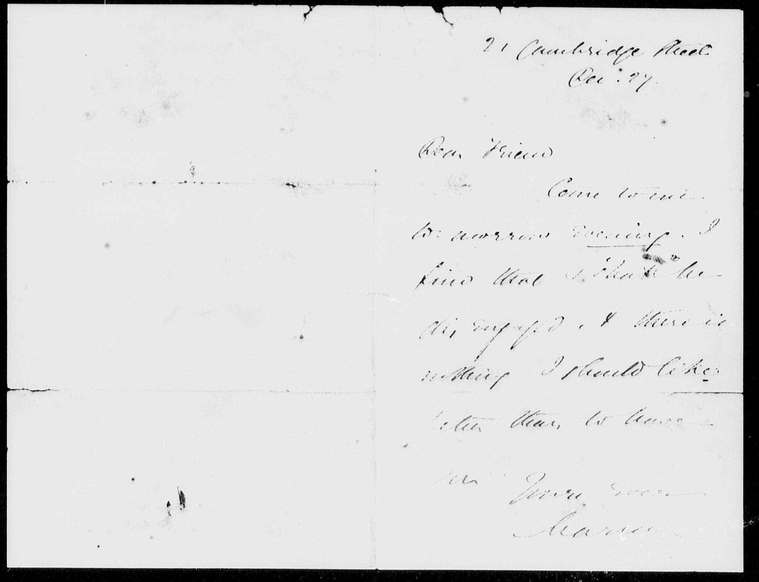 21 Cambridge Street
Dec. 27.
Dear Friend
Come to me
to-morrow evening. I
find that I shall be
disengaged & there is
nothing I should like
better than to have
you Yours ever
Marian